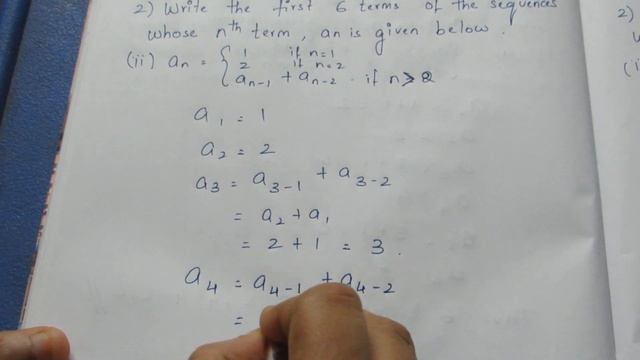 2) Write the first 6 terms of the sequences
whose nth term, an is given below.
(ii) an = { 1 if n=1
2 if n=2
an-1 + an-2 if n > 2
a1 = 1
a2 = 2
a3 = a3-1 + a3-2
= a2 + a1
= 2 + 1 = 3.
a4 = a4-1 + a4-2
=
2)
(i